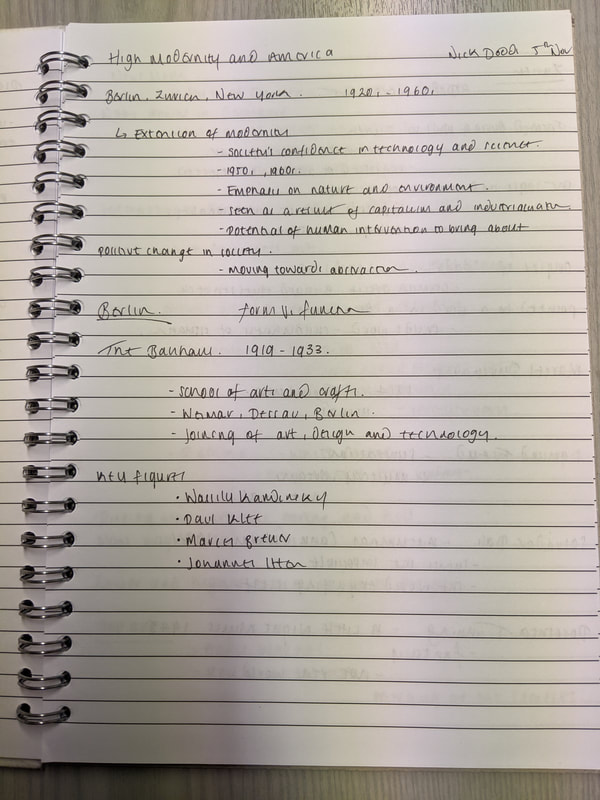 High Modernity and America
Nick Dodd 5th Nov
Berlin, Zurich, New York. 1920s - 1960s
↳ Extension of modernity
- society's confidence in technology and science.
- 1950s, 1960s.
- Emphasis on nature and environment.
- seen as a result of capitalism and industrialisation
- potential of human intervention to bring about
positive change in society.
- moving towards abstraction.
Berlin. form v. function
The Bauhaus. 1919 - 1933.
- School of arts and crafts.
- Weimar, Dessau, Berlin.
- Joining of art, design and technology.
key figures
• Wassily Kandinsky
• Paul Klee
• Marcel Breuer
• Johannes Itten